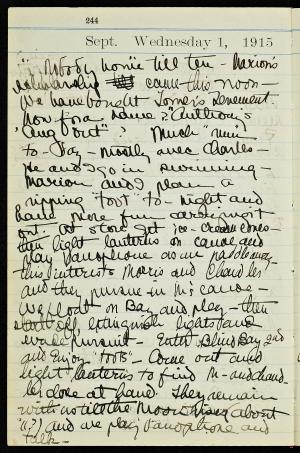 244
Sept. Wednesday 1, 1915
Nobody home till ten - Marion's
scholarship came this noon -
We have bought Somes's Tenement.
Now for a name? "Anthony's
Dug out"? Much "min
to-Day - mostly avec Charles -
He and I go in swimming
Marion and I plan a
ripping "toot" to-night and
have more fun carrying it
out. At store get ice-cream cones -
then light lanterns on canoe and
play Vanophone as we paddle away
this interests Morris and Charles
and they pursue in M's canoe -
We float on Bay and play - then
start off, extinguish lights and
evade pursuit - Enter Blind Bay
and Enjoy "toots" - Come out and
light lanterns to find M- and Chand-
ler close at hand. They remain
with us till the Moon rises (about
and we play Vanophone and
talk -